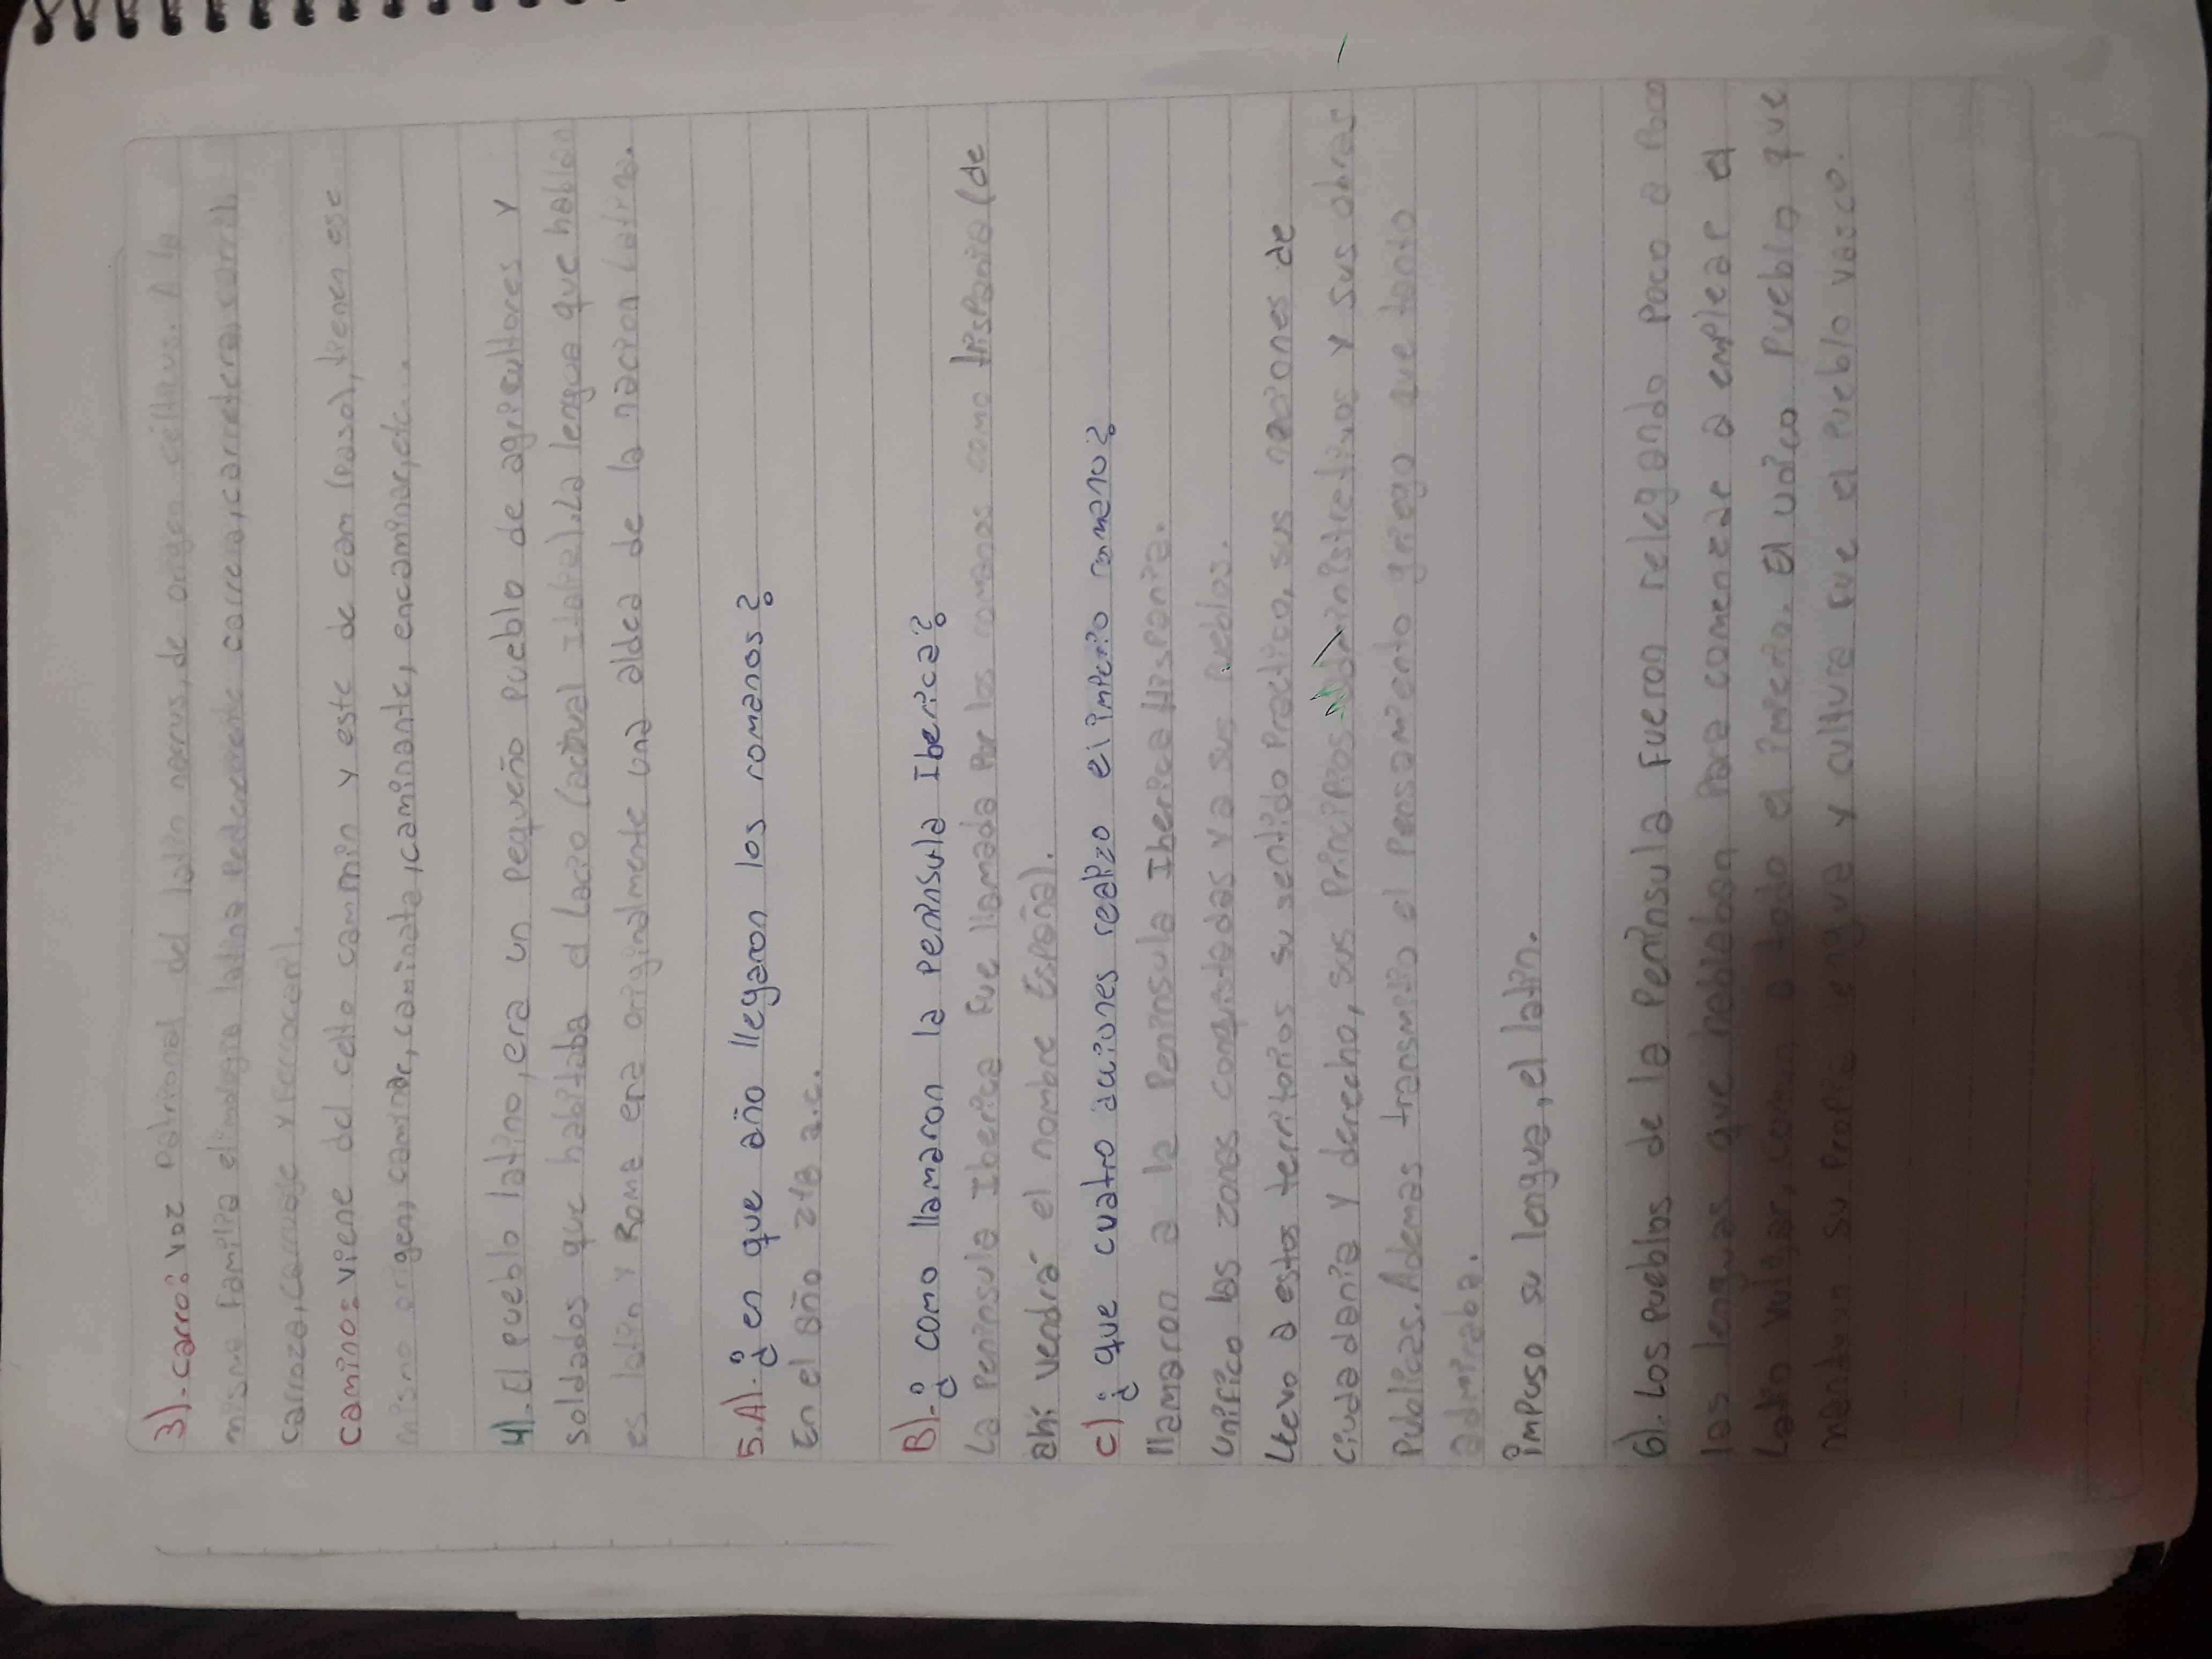 3).-carro: voz patrional del latin narrus, de origen celticus. A la
misma familia etimologia latina pedenecente carrera, carretera, carril,
carroza, carruaje y ferrocarril.
camino: viene del celto cammin y este de cam (paso), tienen ese
mismo origen, caminar, caminata, caminante, encaminar, etc...
4).-El pueblo latino, era un pequeño pueblo de agricultores y
soldados que habitaba el Lacio (actual Italia). La lengua que hablan
es latin y Roma era originalmente una aldea de la nacion latina.
5.A).-¿en que año llegaron los romanos?
En el año 218 a.c.
B).-¿como llamaron la península Iberica?
La Península Iberica fue llamada por los romanos como Hispania (de
ahí vendrá el nombre España).
c)¿que cuatro aciones realizo el imperio romano?
llamaron a la Peninsula Iberica Hispania.
unifico las zonas conquistadas y a sus pueblos.
Llevo a estos territorios su sentido practico, sus nociones de
ciudadania y derecho, sus principios administrativos y sus obras
Publicas. Ademas transmitio el pensamiento griego que tanto
admiraba.
impuso su lengua, el latin.
6). Los pueblos de la Península fueron relegando poco a poco
las lenguas que hablaban para comenzar a emplear el
Latin vulgar, comun a todo el imperio. El unico pueblo que
mantuvo su propia lengua y cultura fue el pueblo vasco.